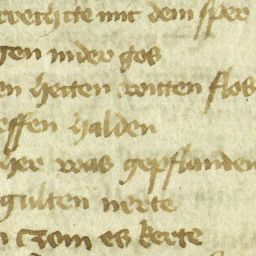 vechte mit dem sper
gen in der gos
en hetten witten flos
effen halden
her was gepflanden
gulten nerte
czom es kerte